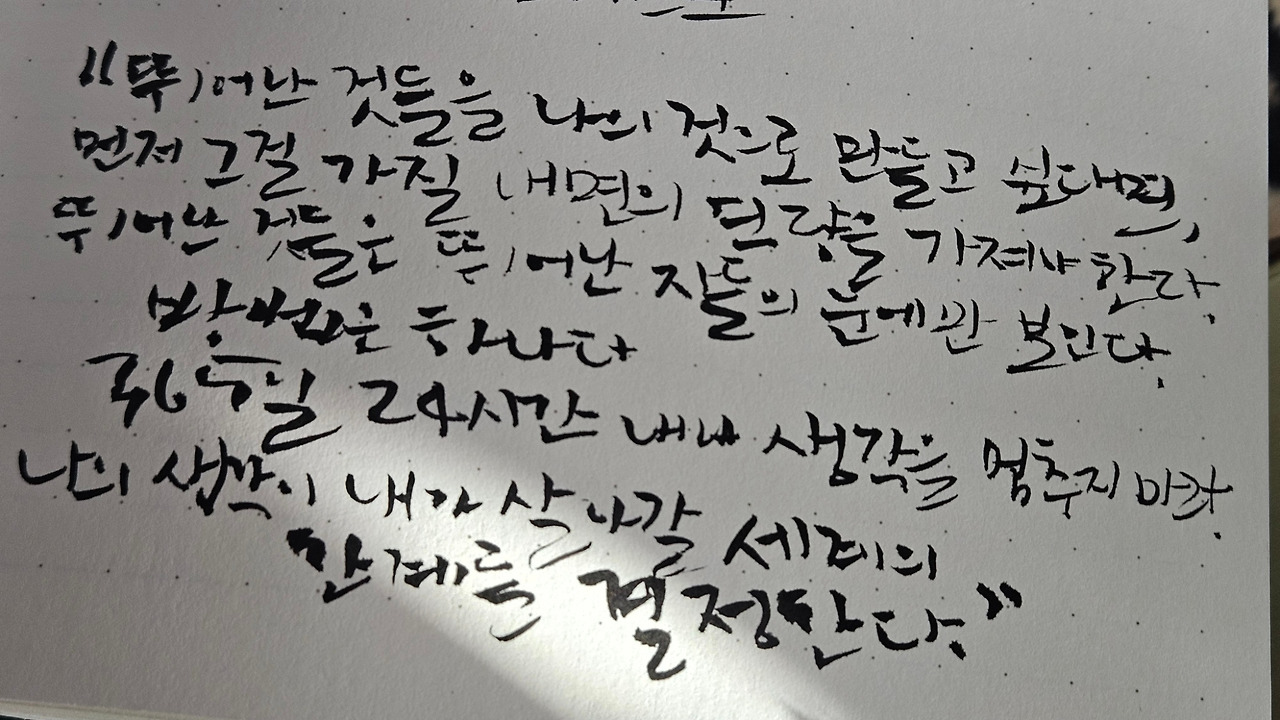 “뛰어난 것들을 나의 것으로 만들고 싶다면,
먼저 그걸 가질 내면의 역량을 가져야 한다.
뛰어난 것들은 뛰어난 자들의 눈에만 보인다.
방법은 하나다
365일 24시간 내내 생각을 멈추지 마라.
나의 생각이 내가 살아갈 세계의
한계를 결정한다.”